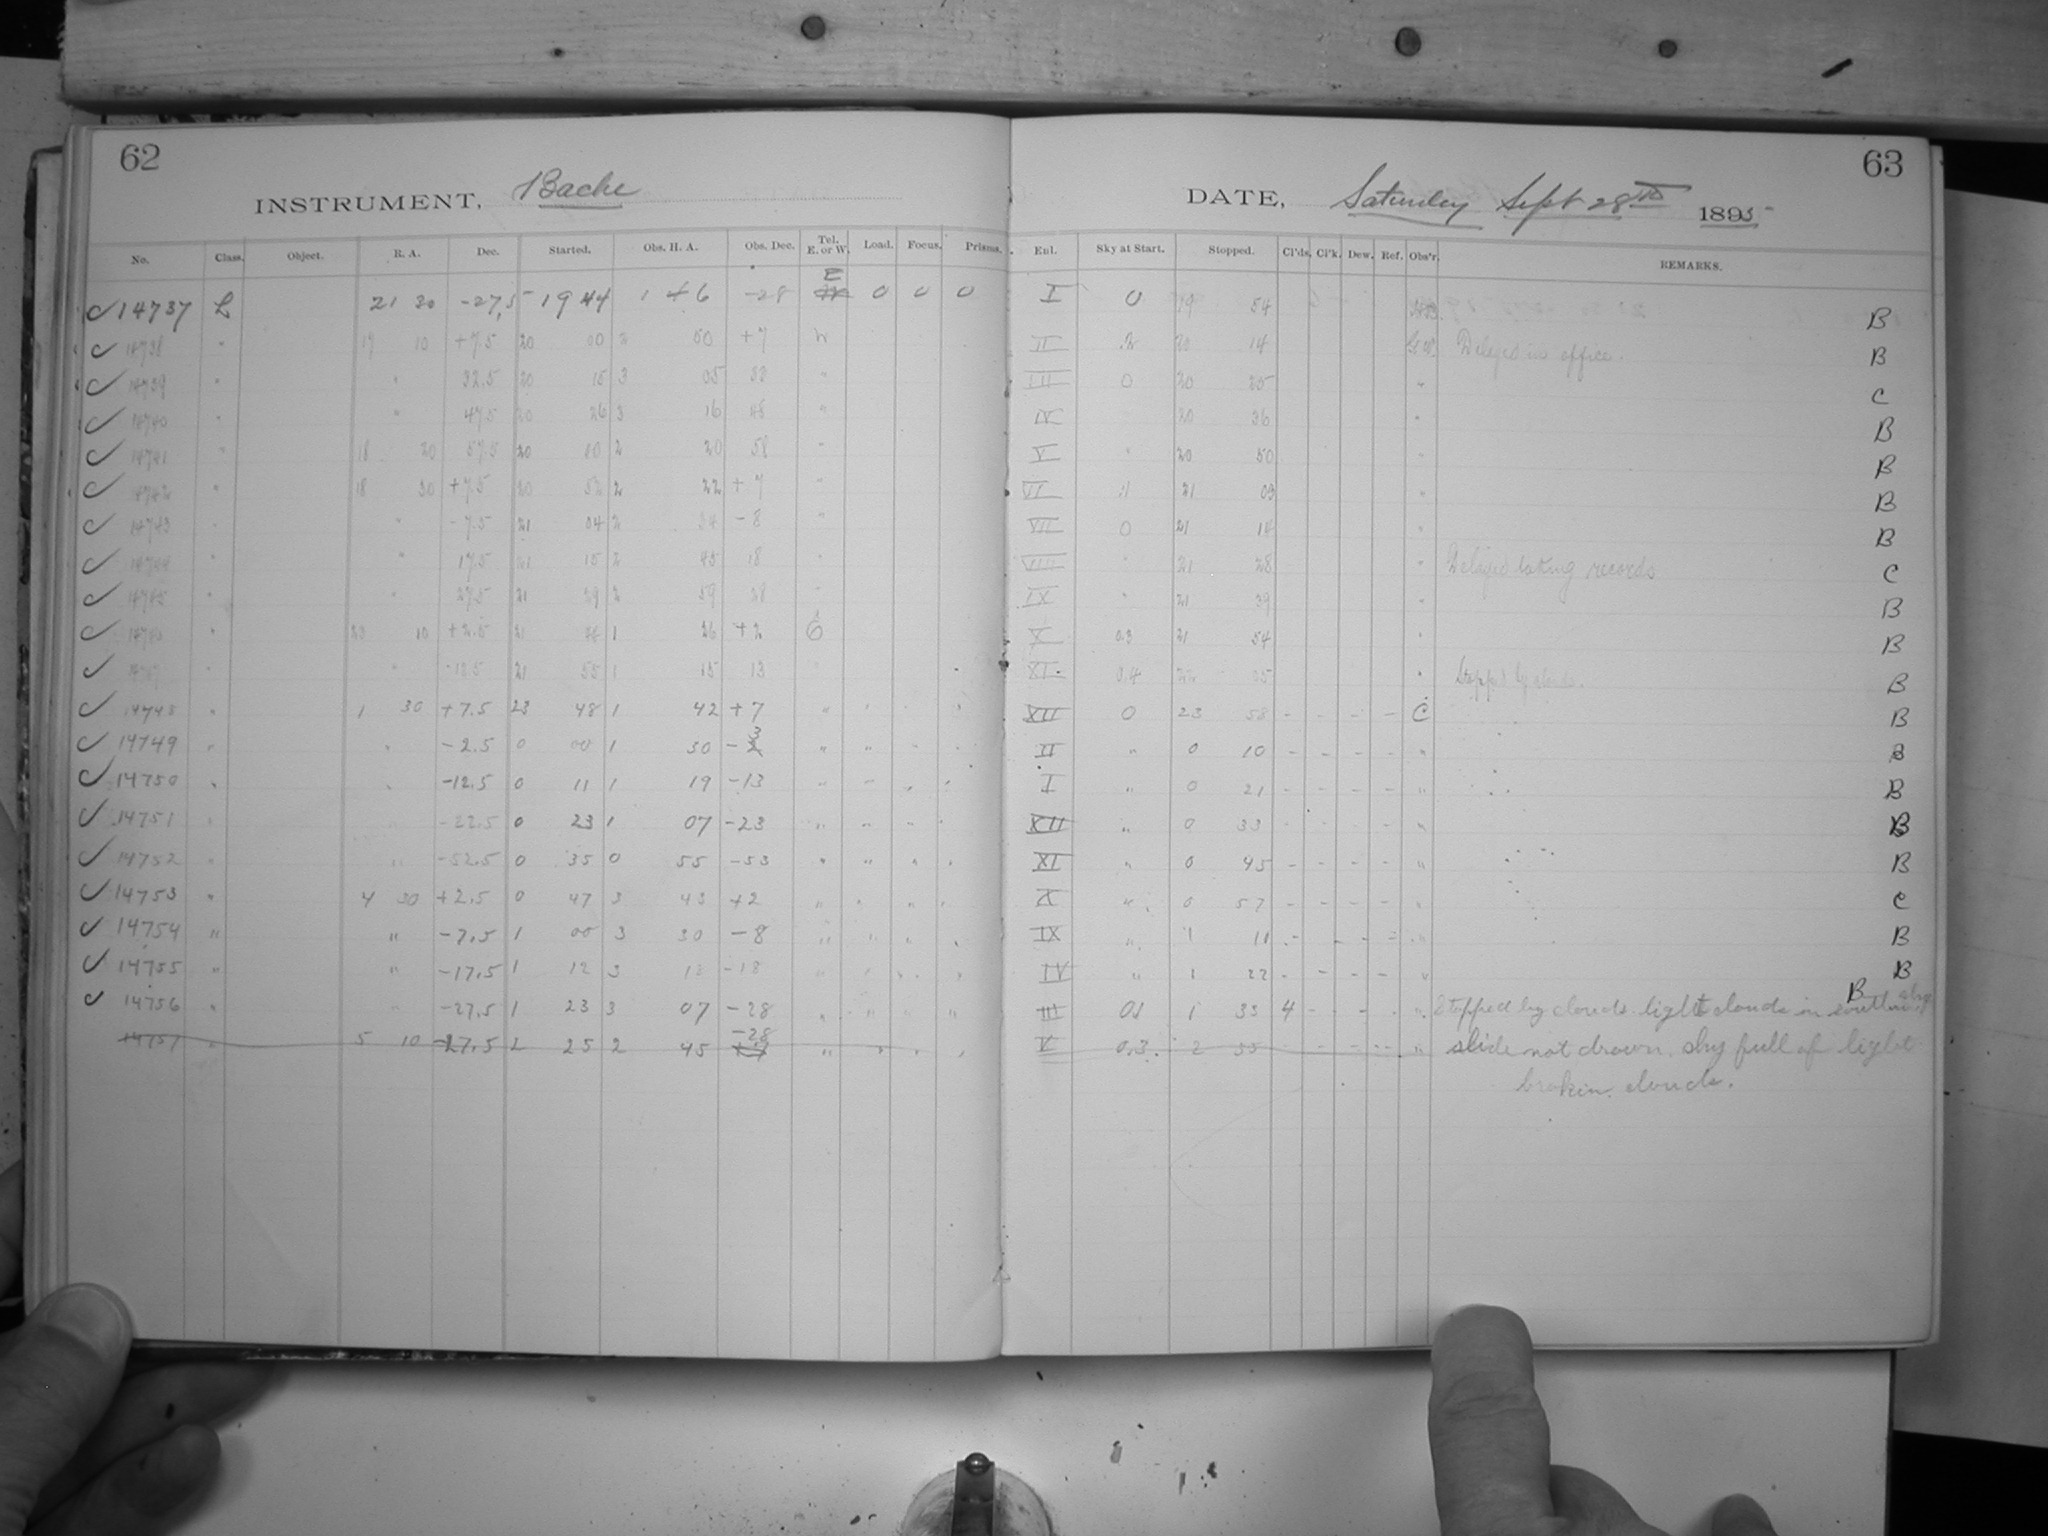 62
INSTRUMENT, Bache
No. Class. Object. R. A. Dec. Started. Obs. H. A. Obs. Dec. Tel. E. or W. Load. Focus. Prisms.
14737 L 21 30 -27.5 19 44 1 46 -28 E 0 0 0
14738 " 17 10 +7.5 20 00 2 50 +7 W
14739 " " 32.5 20 15 3 05 33 "
14740 " " 47.5 20 26 3 16 48 "
14741 " 18 30 57.5 20 2 20 58 "
14742 " 18 30 +7.5 20 52 2 22 +7 "
14743 " " -7.5 21 04 2 34 -8 "
14744 " " 17.5 21 15 2 45 18 "
14745 " " 27.5 21 29 2 59 28 "
" 20 10 +2.5 21 1 26 +2 E
" " -12.5 21 55 1 15 13 "
14748 " 1 30 +7.5 23 48 1 42 +7 " " "
14749 " " -2.5 0 00 1 30 -3 " " " "
14750 " " -12.5 0 11 1 19 -13 " " " "
14751 " " -22.5 0 23 1 07 -23 " " " "
14752 " " -52.5 0 35 0 55 -53 " " " "
14753 " 4 30 +2.5 0 47 3 43 +2 " " " "
14754 " " -7.5 1 00 3 30 -8 " " " "
14755 " " -17.5 1 12 3 -18 " " " "
14756 " " -27.5 1 23 3 07 -28 " " " "
14757 " 5 10 -27.5 2 25 2 45 -28 " " " "
63
DATE, Saturday Sept 28th 1895
Enl. Sky at Start. Stopped. Cl'ds. Cl'k. Dew. Ref. Obs'r. REMARKS.
I 0 19 54 B
II 20 14 Delayed in office. B
III 0 20 25 " C
IV 20 36 " B
V " 20 50 " B
VI .1 21 03 " B
VII 0 21 14 " B
VIII " 21 28 " Delayed taking records C
IX " 21 39 " B
X 0.3 21 54 " B
XI 0.4 22 05 " Stopped by clouds. B
XII 0 23 58 - - - - C B
II " 0 10 - - - - " B
I " 0 21 - - - - " B
XII " 0 33 - - - - " B
XI " 0 45 - - - - " B
X " 0 57 - - - - " C
IX " 1 11 - - - - " B
IV " 1 22 - - - - " B
III 0.1 1 33 4 - - - " Stopped by clouds light clouds in southern sky B
V 0.3 2 35 - - - - " slide not drawn. sky full of light
broken clouds.